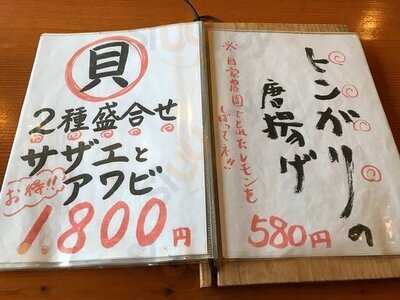 貝
2種盛合せ
サザエと
アワビ
お得!!
1.800円
トンガリの
唐揚げ
※自家農園でとれたレモンを
しぼってネ!!
580円